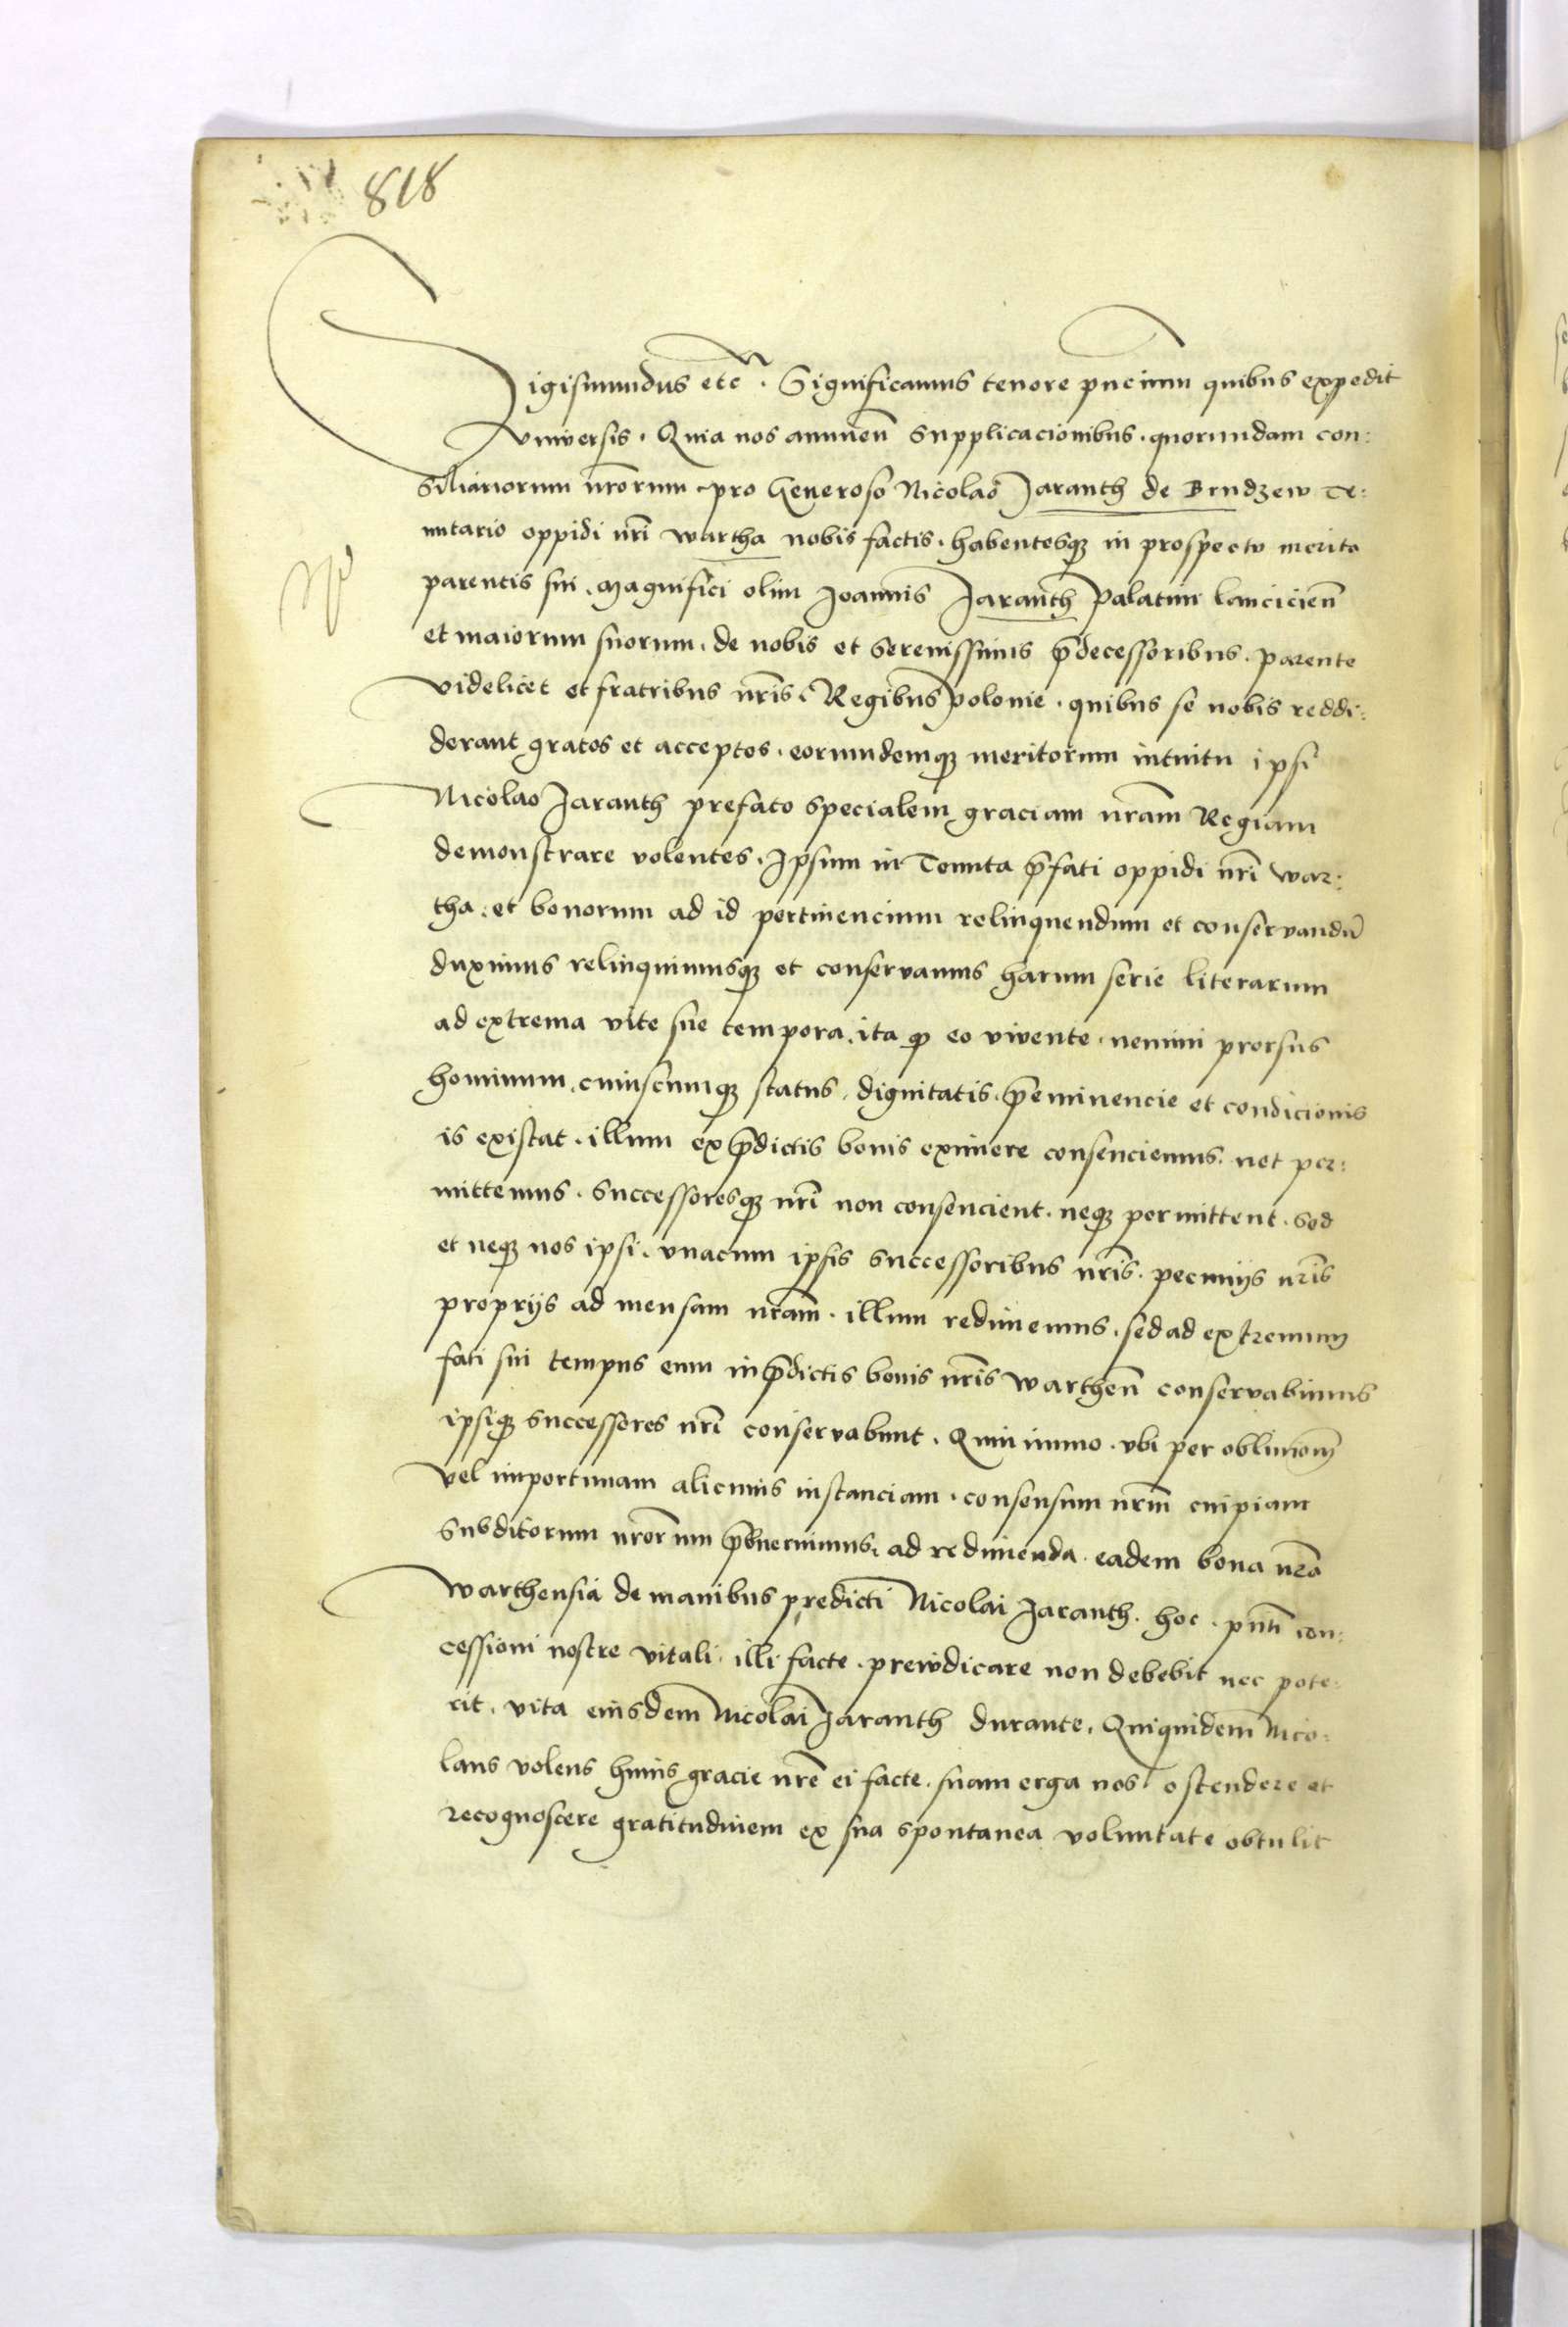 818
Sigismundus etc̃. Significamus tenore pñcium quibus expedit
Vniversis. Quia nos annuen̄ supplicacionibus. quorundam con:
siliariorum nr̃orum pro Generoso Nicolao Jaranth de Brudzew Te:
nutario oppidi nr̃i wartha nobis factis. habentesqꝫ in prospectu merita
parentis sui. Magnifici olim Joannis Jaranth Palatini lancicien̄
et maiorum suorum. de nobis et serenissimis p̄decessoribus. parente
videlicet et fratribus nr̃is. Regibus polonie. quibus se nobis reddi:
derant gratos et acceptos. eorumdemqꝫ meritorum intuitu ipsi
Nicolao Jaranth prefato specialem graciam nr̃am Regiam
demonstrare volentes. Ipsum in Tenuta p̄fati oppidi nr̃i war:
tha. et bonorum ad id pertinencium relinquendum et conservandū
duximus relinquimusqꝫ et conservamus harum serie literarum
ad extrema vite sue tempora. ita ꝙ eo vivente. nemini prorsus
hominum. cuiuscumqꝫ status. dignitatis. p̄eminencie et condicionis
is existat. illum ex p̄dictis bonis eximere consenciemus. net per:
mittemus. successoresqꝫ nr̃i non consencient. neqꝫ permittent. sed
et neqꝫ nos ipsi. vnacum ipsis successoribus nr̃is. pecunijs nr̃is
proprijs ad mensam nr̃am. illum redimemus. sed ad extremum
fati sui tempus eum in p̄dictis bonis nr̃is warthen̄ conservabimus
ipsiqꝫ successores nr̃i conservabunt. Quinimmo. vbi per oblivionē
vel importunam alicuius instanciam. consensum nr̃m cuipiam
subditorum nr̃orum p̄buerimus. ad redimenda. eadem bona nr̃a
warthensia de manibus predicti Nicolai Jaranth. hoc. pn̄ti con:
cessioni nostre vitali. illi facte. preiudicare non debebit nec pote:
rit. vita eiusdem Nicolai Jaranth durante. Quiquidem Nico:
laus volens huius gracie nr̃e ei facte. suam erga nos ostendere et
recognoscere gratitudinem ex sua spontanea voluntate obtulit